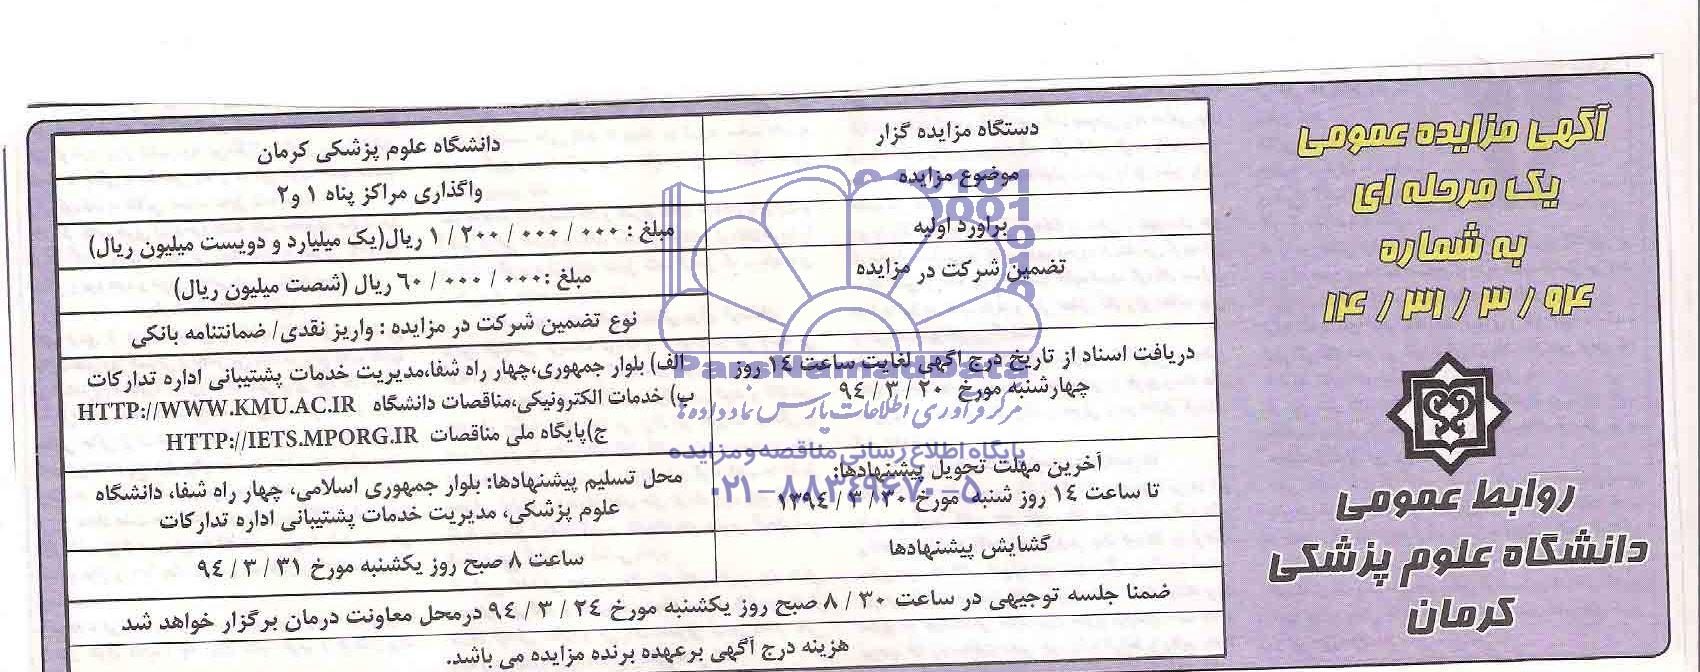 آگهی مزایده عمومی
یک مرحله ای
به شماره
۹۴ / ۳ / ۳۱ / ۱۴
روابط عمومی
دانشگاه علوم پزشکی
کرمان
دستگاه مزایده گزار
دانشگاه علوم پزشکی کرمان
موضوع مزایده
واگذاری مراکز پناه ۱ و۲
برآورد اولیه
مبلغ : ۰۰۰ / ۰۰۰ / ۲۰۰ / ۱ ریال(یک میلیارد و دویست میلیون ریال)
تضمین شرکت در مزایده
مبلغ :۰۰۰ / ۰۰۰ / ۶۰ ریال (شصت میلیون ریال)
نوع تضمین شرکت در مزایده : واریز نقدی/ ضمانتنامه بانکی
دریافت اسناد از تاریخ درج آگهی لغایت ساعت ۱۴ روز
چهارشنبه مورخ ۲۰ / ۳ / ۹۴
الف) بلوار جمهوری،چهار راه شفا،مدیریت خدمات پشتیبانی اداره تدارکات
ب) خدمات الکترونیکی،مناقصات دانشگاه HTTP://WWW.KMU.AC.IR
ج)پایگاه ملی مناقصات HTTP://IETS.MPORG.IR
آخرین مهلت تحویل پیشنهادها:
تا ساعت ۱۴ روز شنبه مورخ ۳۰ / ۳ / ۱۳۹۴
محل تسلیم پیشنهادها: بلوار جمهوری اسلامی، چهار راه شفا، دانشگاه
علوم پزشکی، مدیریت خدمات پشتیبانی اداره تدارکات
گشایش پیشنهادها
ساعت ۸ صبح روز یکشنبه مورخ ۳۱ / ۳ / ۹۴
ضمنا جلسه توجیهی در ساعت ۳۰ / ۸ صبح روز یکشنبه مورخ ۲۴ / ۳ / ۹۴ درمحل معاونت درمان برگزار خواهد شد
هزینه درج آگهی برعهده برنده مزایده می باشد.
ParsNamadData
مرکز فرآوری اطلاعات پارس نماد داده ها
پایگاه اطلاع رسانی مناقصه و مزایده
۰۲۱-۸۸۳۴۹۶۷۰-۵